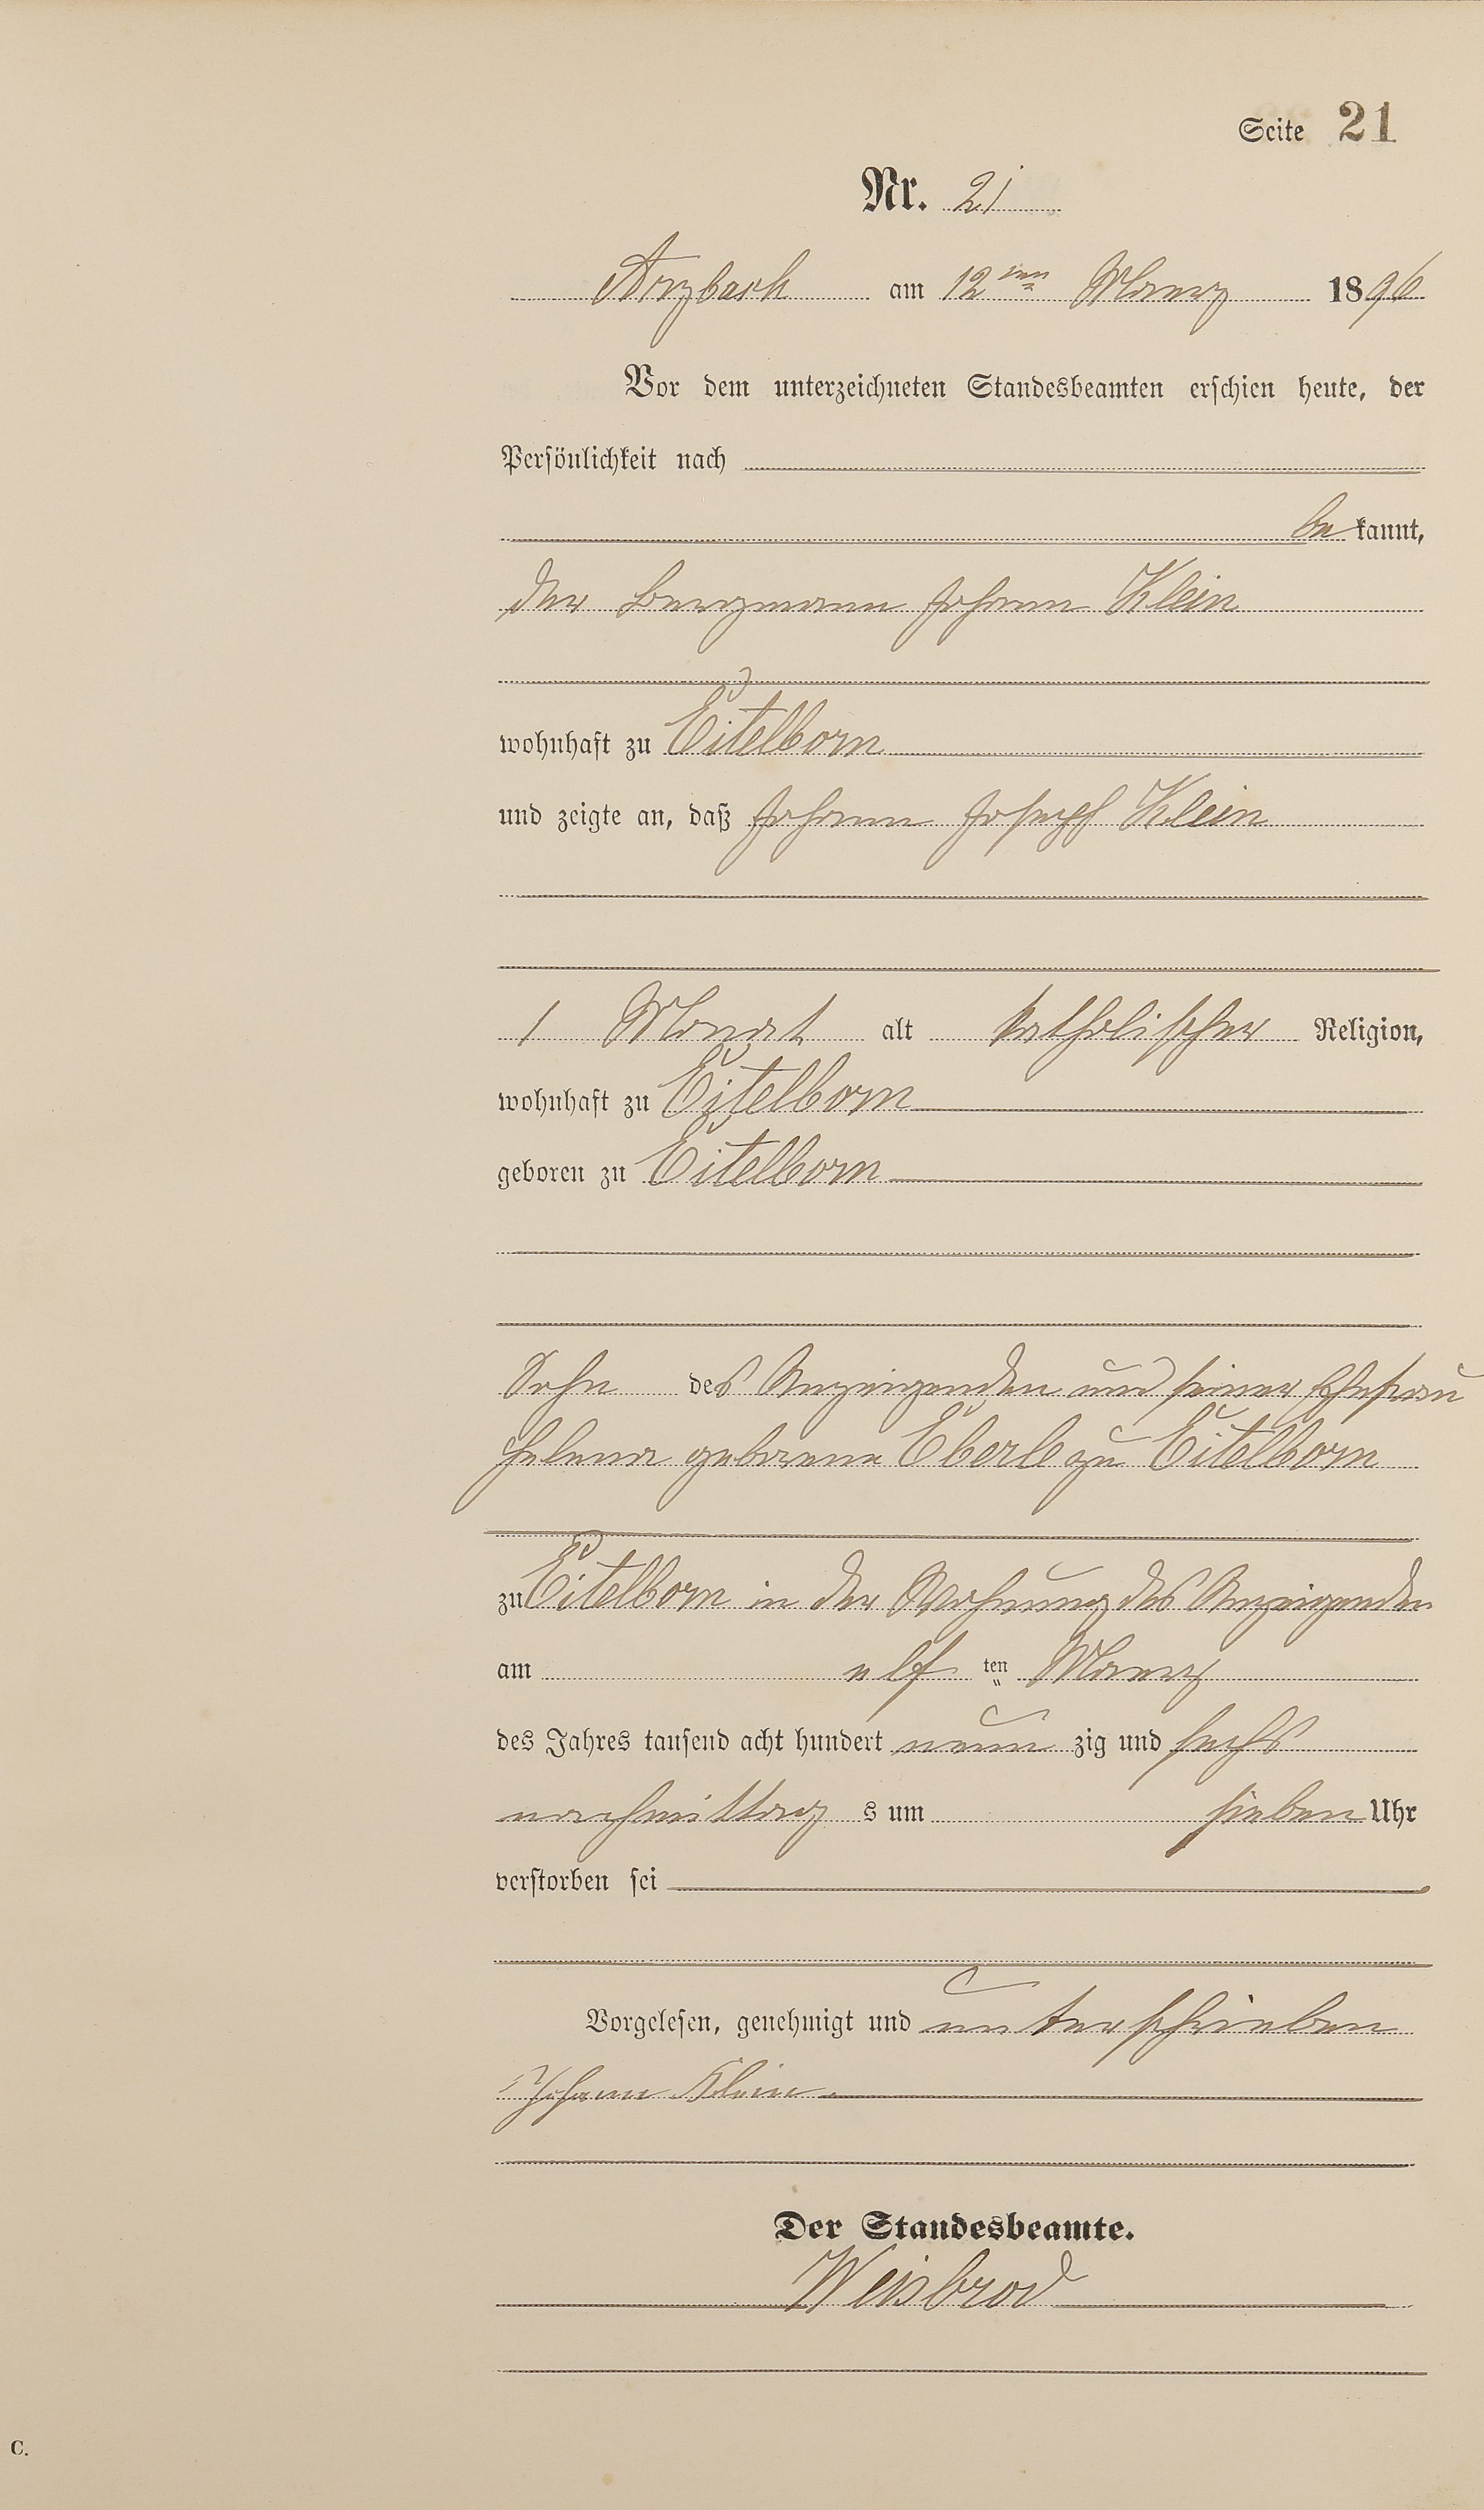 Seite 21
Nr. 21
Arzbach am 12ten März 1896
Vor dem unterzeichneten Standesbeamten erschien heute, der
Persönlichkeit nach
bekannt,
der Bergmann Johann Klein
wohnhaft zu Eitelborn
und zeigte an, daß Johann Joseph Klein
1 Monat alt katholischer Religion,
wohnhaft zu Eitelborn
geboren zu Eitelborn
Sohn des Anzeigenden und seiner Ehefrau
Helena geborene Eberle zu Eitelborn
zu Eitelborn in der Wohnung des Anzeigenden
am elf ten März
des Jahres tausend acht hundert neunzig und sechs
nachmittags um sieben Uhr
verstorben sei
Vorgelesen, genehmigt und unterschrieben
Johann Klein
Der Standesbeamte.
Weisbrod
C.